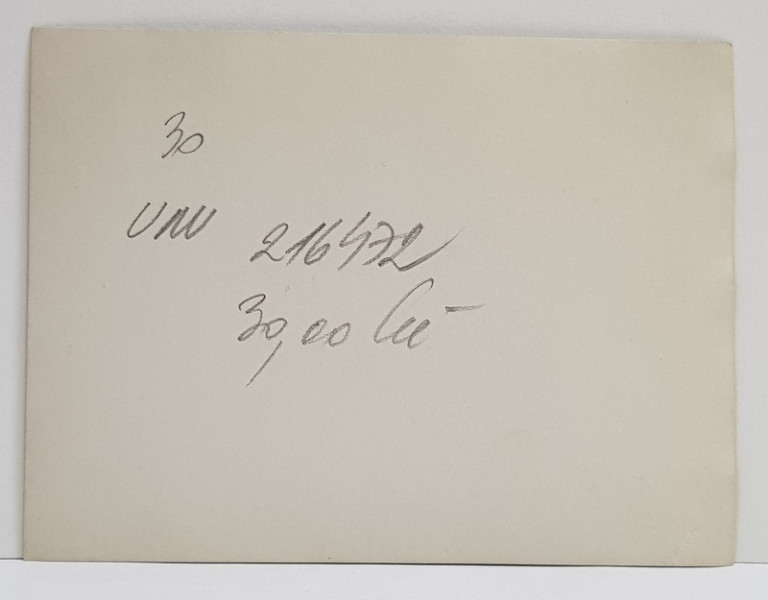 30
UNV 216472
30,00 lei